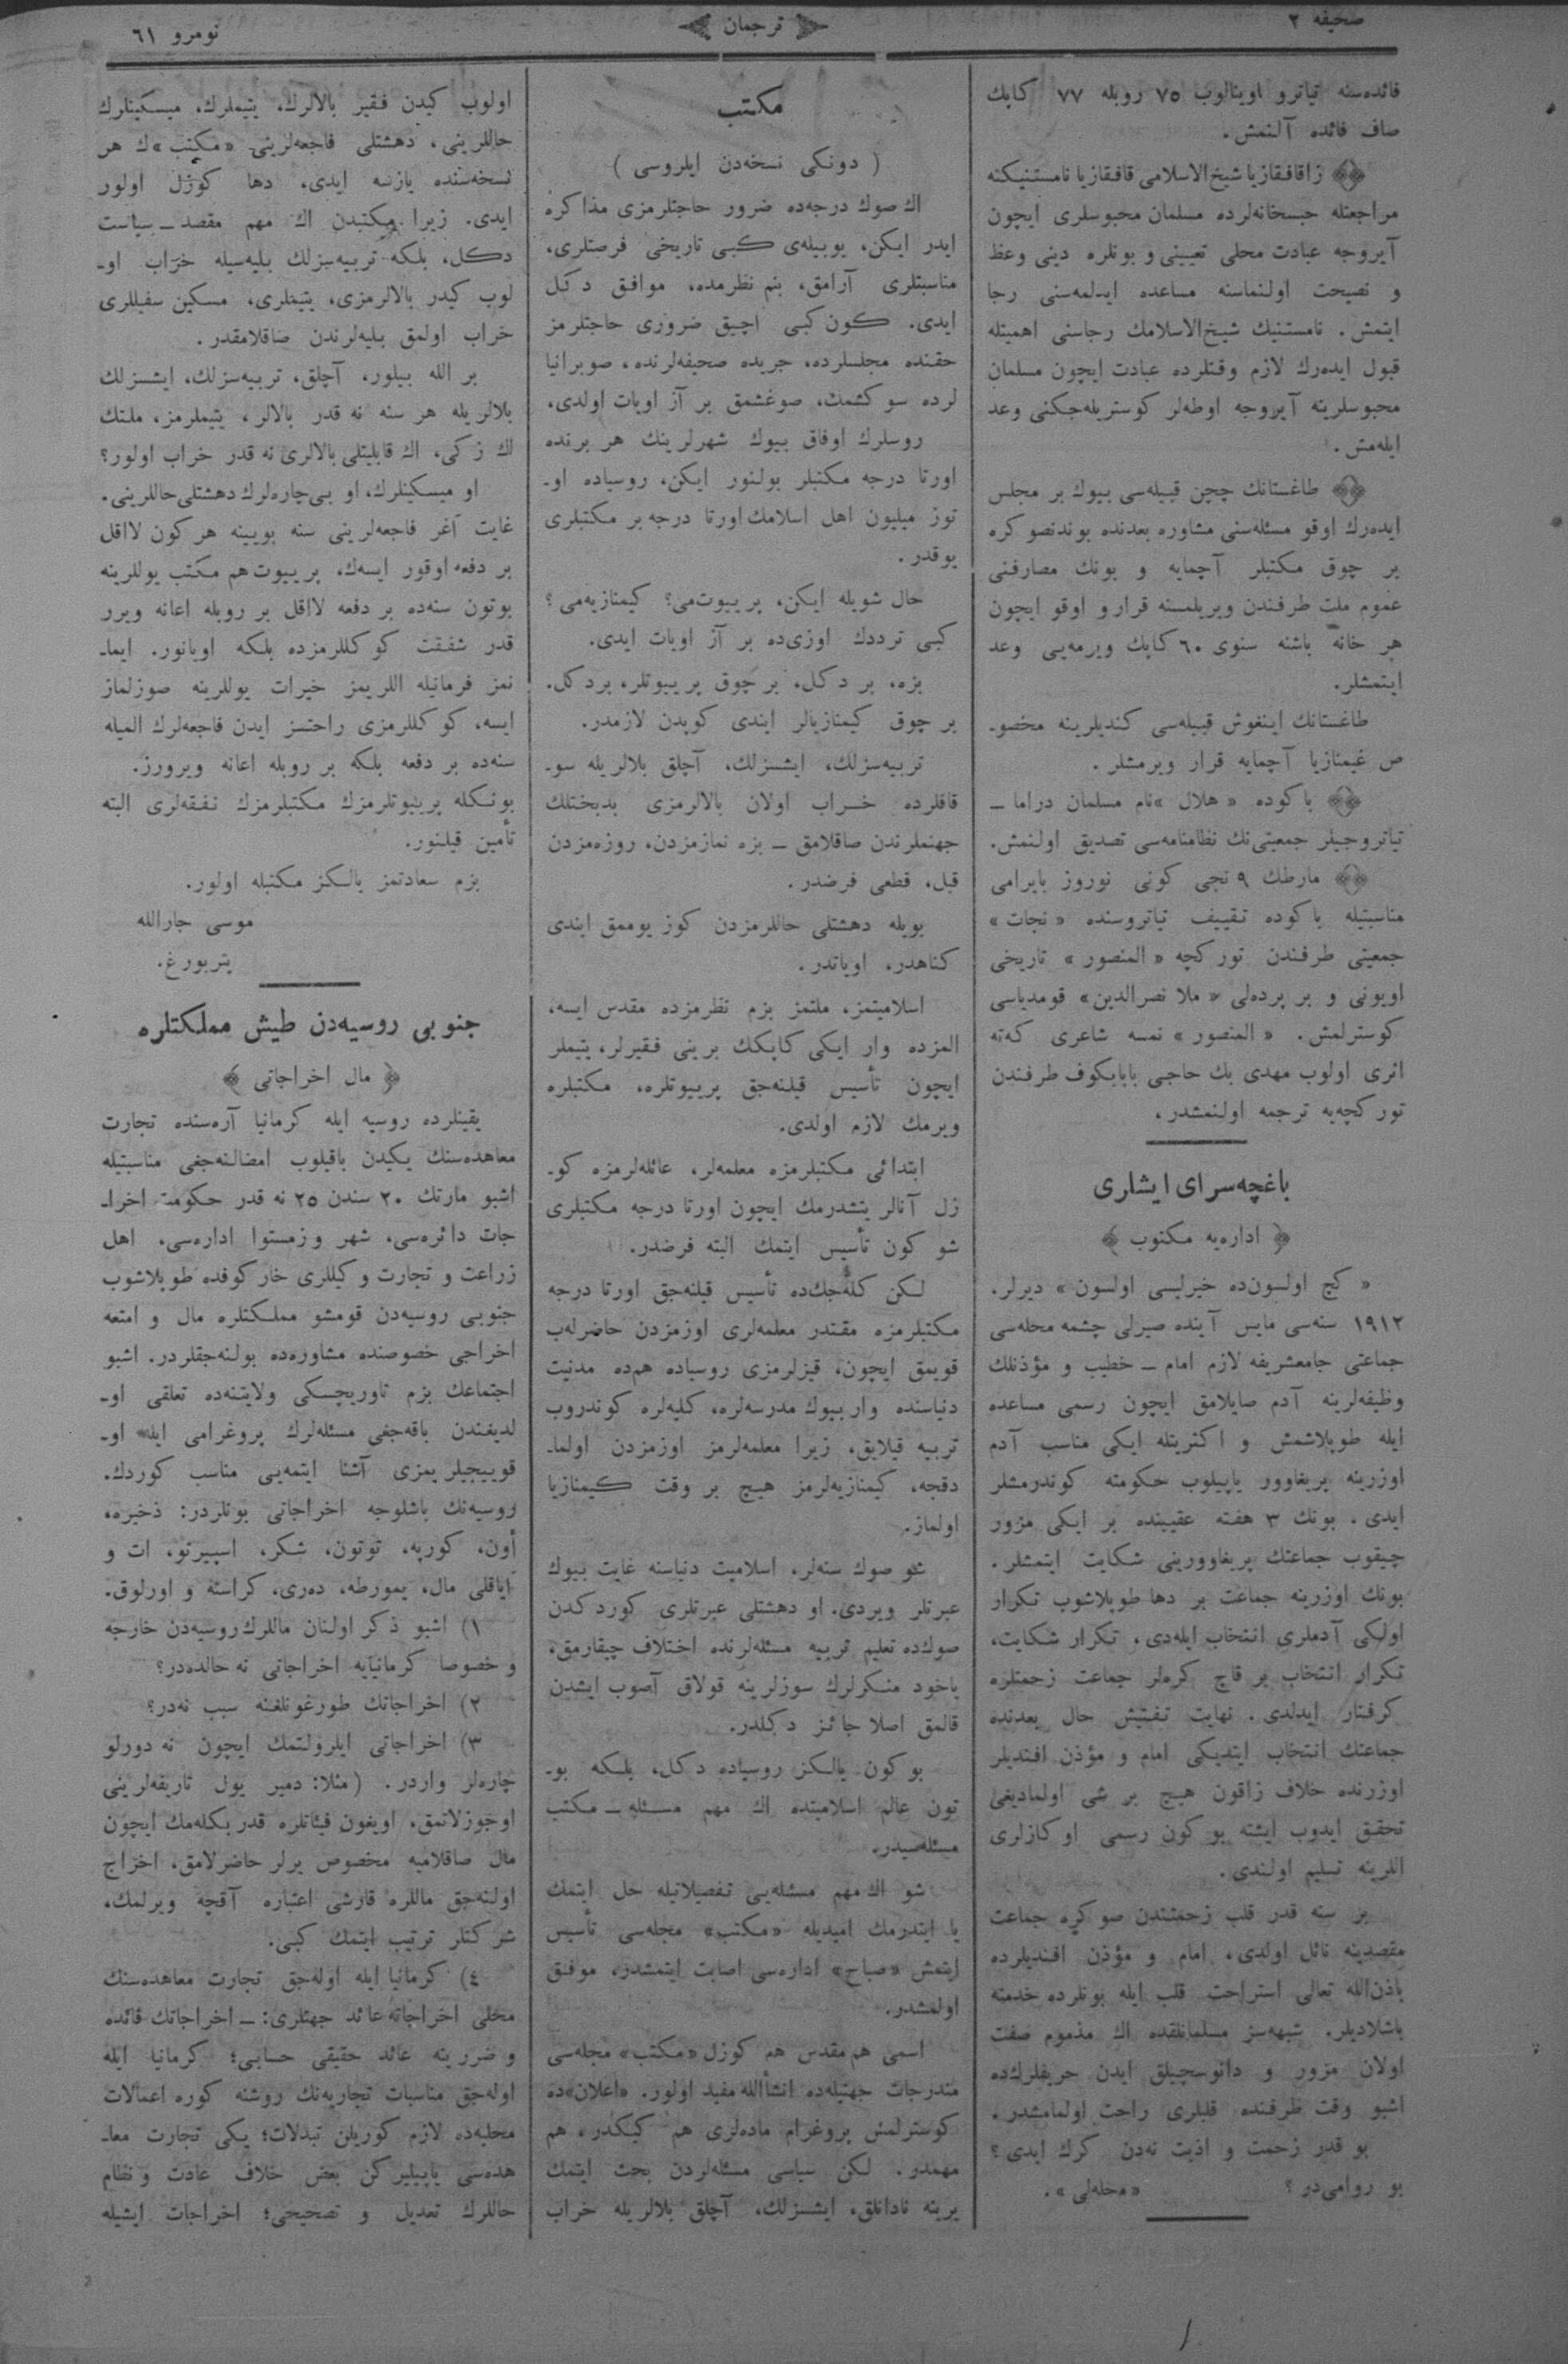 صحیفه ٢
ترجمان
نومرو ٦١
فائده‌سنه تیاترو اوینالوب ٧٥ روبله ٧٧ كاپك
صاف فائده آلنمش.
زاقافقازیا شیخ‌الاسلامی قافقازیا نامستنیكنه
مراجعتله حبسخانه‌لرده مسلمان محبوسلری ایچون
آیروجه عبادت محلی تعیینی و بونلره دینی وعظ
و نصیحت اولنماسنه مساعده ایدلمه‌سنی رجا
ایتمش. نامستنیك شیخ‌الاسلامك رجاسنی اهمیتله
قبول ایده‌رك لازم وقتلرده عبادت ایچون مسلمان
محبوسلرینه آیروجه اوطه‌لر كوستریله‌جكنی وعد
ایله‌مش.
طاغستانك چچن قبیله‌سی بیوك بر مجلس
ایده‌رك اوقو مسئله‌سنی مشاوره بعدنده بوندنصوكره
بر چوق مكتبلر آچمایه و بونك مصارفنی
عموم ملت طرفندن ویریلمسنه قرار و اوقو ایچون
هر خانه باشنه سنوی ٦٠ كاپك ویرمه‌یی وعد
ایتمشلر.
طاغستانك اینغوش قبیله‌سی كندیلرینه مخصو-
ص غیمنازیا آچمایه قرار ویرمشلر.
باكوده « هلال » نام مسلمان دراما ـ
تیاتروجیلر جمعیتی‌نك نظامنامه‌سی تصدیق اولنمش.
مارطك ٩ نجی كونی نوروز بایرامی
مناسبتیله باكوده تقییف تیاتروسنده « نجات »
جمعیتی طرفندن توركچه « المنصور » تاریخی
اویونی و بر پرده‌لی « ملا نصرالدین » قومدیاسی
كوسترلمش. « المنصور » نمسه شاعری كه‌ته
اثری اولوب مهدی بك حاجی بابابكوف طرفندن
توركچه‌یه ترجمه اولنمشدر.
باغچه‌سرای ایشلری
﴿ اداره‌یه مكتوب ﴾
« كچ اولسون‌ده خیرلیسی اولسون » دیرلر.
١٩١٢ سنه‌سی مایس آینده صیرلی چشمه محله‌سی
جماعتی جامعشریفه لازم امام ـ خطیب و مؤذنلك
وظیفه‌لرینه آدم صایلامق ایچون رسمی مساعده
ایله طوپلاشمش و اكثریتله ایكی مناسب آدم
اوزرینه پریغاوور یاپیلوب حكومته كوندرمشلر
ایدی. بونك ٣ هفته عقیبنده بر ایكی مزور
چیقوب جماعتك پریغاوورینی شكایت ایتمشلر.
بونك اوزرینه جماعت بر دها طوپلاشوب تكرار
اولكی آدملری انتخاب ایله‌دی، تكرار شكایت،
تكرار انتخاب بر قاچ كره‌لر جماعت زحمتلره
كرفتار ایدلدی. نهایت تفتیش حال بعدنده
جماعتك انتخاب ایتدیكی امام و مؤذن افندیلر
اوزرنده خلاف زاقون هیچ بر شی اولمادیغی
تحقق ایدوب ایشته بو كون رسمی اوكازلری
اللرینه تسلیم اولندی.
بر سنه قدر قلب زحمتندن صوكره جماعت
مقصدینه نائل اولدی، امام و مؤذن افندیلرده
باذن‌الله تعالی استراحت قلب ایله بونلرده خدمته
باشلادیلر. شبهه‌سز مسلمانلقده اك مذموم صفت
اولان مزور و دانوسچیلق ایدن حریفلرك‌ده
اشبو وقت ظرفنده قلبلری راحت اولمامشدر.
بو قدر زحمت و اذیت نه‌دن كرك ایدی؟
بو روامی‌در؟ « محله‌لی ».
مكتب
( دونكی نسخه‌دن ایلروسی )
اك صوك درجه‌ده ضرور حاجتلرمزی مذاكره
ایدر ایكن، یوبیله‌ی كبی تاریخی فرصتلری،
مناسبتلری آرامق، بنم نظرمده، موافق دكل
ایدی. كون كبی آچیق ضروری حاجتلرمز
حقنده مجلسلرده، جریده صحیفه‌لرنده، صوبرانیا
لرده سوكشمك، صوغشمق بر آز اویات اولدی،
روسلرك اوفاق بیوك شهرلرینك هر برنده
اورتا درجه مكتبلر بولنور ایكن، روسیاده او-
توز میلیون اهل اسلامك اورتا درجه بر مكتبلری
یوقدر.
حال شویله ایكن، پرییوت‌می؟ كیمنازیه‌می؟
كبی ترددك اوزی‌ده بر آز اویات ایدی.
بزه، بر دكل، بر چوق پرییوتلر، بر دكل.
بر چوق كیمنازیالر ایندی كوپدن لازمدر.
تربیه‌سزلك، ایشسزلك، آچلق بلالریله سو-
قاقلرده خراب اولان بالالرمزی بدبختلك
جهنملرندن صاقلامق ـ بزه نمازمزدن، روزه‌مزدن
قبل، قطعی فرضدر.
بویله دهشتلی حاللرمزدن كوز یوممق ایندی
كناهدر، اویاتدر.
اسلامیتمز، ملتمز بزم نظرمزده مقدس ایسه،
المزده وار ایكی كاپكك برینی فقیرلر، یتیملر
ایچون تأسیس قیلنه‌جق پرییوتلره، مكتبلره
ویرمك لازم اولدی.
ابتدائی مكتبلرمزه معلمه‌لر، عائله‌لرمزه كو-
زل آنالر یتشدرمك ایچون اورتا درجه مكتبلری
شو كون تأسیس ایتمك البته فرضدر.
لكن كله‌جك‌ده تأسیس قیلنه‌جق اورتا درجه
مكتبلرمزه مقتدر معلمه‌لری اوزمزدن حاضرله‌ب
قویمق ایچون، قیزلرمزی روسیاده هم‌ده مدنیت
دنیاسنده وار بیوك مدرسه‌لره، كلیه‌لره كوندروب
تربیه قیلایق، زیرا معلمه‌لرمز اوزمزدن اولما-
دقجه، كیمنازیه‌لرمز هیچ بر وقت كیمنازیا
اولماز.
شو صوك سنه‌لر، اسلامیت دنیاسنه غایت بیوك
عبرتلر ویردی. او دهشتلی عبرتلری كوردكدن
صوك‌ده تعلیم تربیه مسئله‌لرنده اختلاف چیقارمق،
یاخود منكرلرك سوزلرینه قولاق آصوب ایشدن
قالمق اصلا جائز دكلدر.
بو كون یالكز روسیاده دكل، بلكه بو-
تون عالم اسلامیتده اك مهم مسئله ـ مكتب
مسئله‌سیدر.
شو اك مهم مسئله‌یی تفصیلاتیله حل ایتمك
یا ایتدرمك امیدیله «مكتب» مجله‌سی تأسیس
ایتمش «صباح» اداره‌سی اصابت ایتمشدر، موفق
اولمشدر.
اسمی هم مقدس هم كوزل «مكتب» مجله‌سی
مندرجات جهتیله‌ده انشأالله مفید اولور. «اعلان»ده
كوسترلمش پروغرام ماده‌لری هم كیكدر، هم
مهمدر. لكن سیاسی مسئله‌لردن بحث ایتمك
یرینه نادانلق، ایشسزلك، آچلق بلالریله خراب
اولوب كیدن فقیر بالالرك، یتیملرك، میسكینلرك
حاللرینی، دهشتلی فاجعه‌لرینی «مكتب»ك هر
نسخه‌سنده یازسه ایدی، دها كوزل اولور
ایدی. زیرا مكتبدن اك مهم مقصد ـ سیاست
دكل، بلكه تربیه‌سزلك بلیه‌سیله خراب او-
لوب كیدر بالالرمزی، یتیملری، مسكین سفیللری
خراب اولمق بلیه‌لرندن صاقلامقدر.
بر الله بیلور، آچلق، تربیه‌سزلك، ایشسزلك
بلالریله هر سنه نه قدر بالالر، یتیملرمز، ملتك
اك زكی، اك قابلیتلی بالالری نه قدر خراب اولور؟
او میسكینلرك، او بی‌چاره‌لرك دهشتلی حاللرینی.
غایت آغر فاجعه‌لرینی سنه بویینه هركون لااقل
بر دفعه اوقور ایسه‌ك، پرییوت هم مكتب یوللرینه
بوتون سنه‌ده بر دفعه لااقل بر روبله اعانه ویرر
قدر شفقت كوكللرمزده بلكه اویانور. ایما-
نمز فرمانیله اللریمز خیرات یوللرینه صوزلماز
ایسه، كوكللرمزی راحتسز ایدن فاجعه‌لرك المیله
سنه‌ده بر دفعه بلكه بر روبله اعانه ویرورز.
بونكله پرییوتلرمزك مكتبلرمزك نفقه‌لری البته
تأمین قیلنور.
بزم سعادتمز یالكز مكتبله اولور.
موسی جارالله
پتربورغ.
جنوبی روسیه‌دن طیش مملكتلره
﴿ مال اخراجاتی ﴾
یقینلرده روسیه ایله كرمانیا آره‌سنده تجارت
معاهده‌سنك یكیدن باقیلوب امضالنه‌جغی مناسبتیله
اشبو مارتك ٢٠ سندن ٢٥ نه قدر حكومت اخرا-
جات دائره‌سی، شهر و زمستوا اداره‌سی، اهل
زراعت و تجارت وكیللری خاركوفده طوپلاشوب
جنوبی روسیه‌دن قومشو مملكتلره مال و امتعه
اخراجی خصوصنده مشاوره‌ده بولنه‌جقلردر. اشبو
اجتماعك بزم تاوریچسكی ولایتنه‌ده تعلقی او-
لدیغندن باقه‌جغی مسئله‌لرك پروغرامی ایله او-
قوییجیلریمزی آشنا ایتمه‌یی مناسب كوردك.
روسیه‌نك باشلوجه اخراجاتی بونلردر: ذخیره،
أون، كورپه، توتون، شكر، اسپیرتو، ات و
آیاقلی مال، یمورطه، ده‌ری، كراسته و اورلوق.
١) اشبو ذكر اولنان ماللرك روسیه‌دن خارجه
و خصوصا كرمانیایه اخراجاتی نه حالده‌در؟
٢) اخراجاتك طورغونلغنه سبب نه‌در؟
٣) اخراجاتی ایلرولتمك ایچون نه دورلو
چاره‌لر واردر. (مثلا: دمیر یول تاریفه‌لرینی
اوجوزلاتمق، اویغون فیئاتلره قدر بكله‌مك ایچون
مال صاقلامیه مخصوص یرلر حاضرلامق، اخراج
اولنه‌جق ماللره قارشی اعتباره آقچه ویرلمك،
شركتلر ترتیب ایتمك كبی.
٤) كرمانیا ایله اوله‌جق تجارت معاهده‌سنك
محلی اخراجاته عائد جهتلری: ـ اخراجاتك فائده
و ضررینه عائد حقیقی حسابی؛ كرمانیا ایله
اوله‌جق مناسبات تجاریه‌نك روشنه كوره اعمالات
محلیه‌ده لازم كوریلن تبدلات؛ یكی تجارت معا-
هده‌سی یاپیلیركن بعض خلاف عادت و نظام
حاللرك تعدیل و تصحیحی؛ اخراجات ایشیله